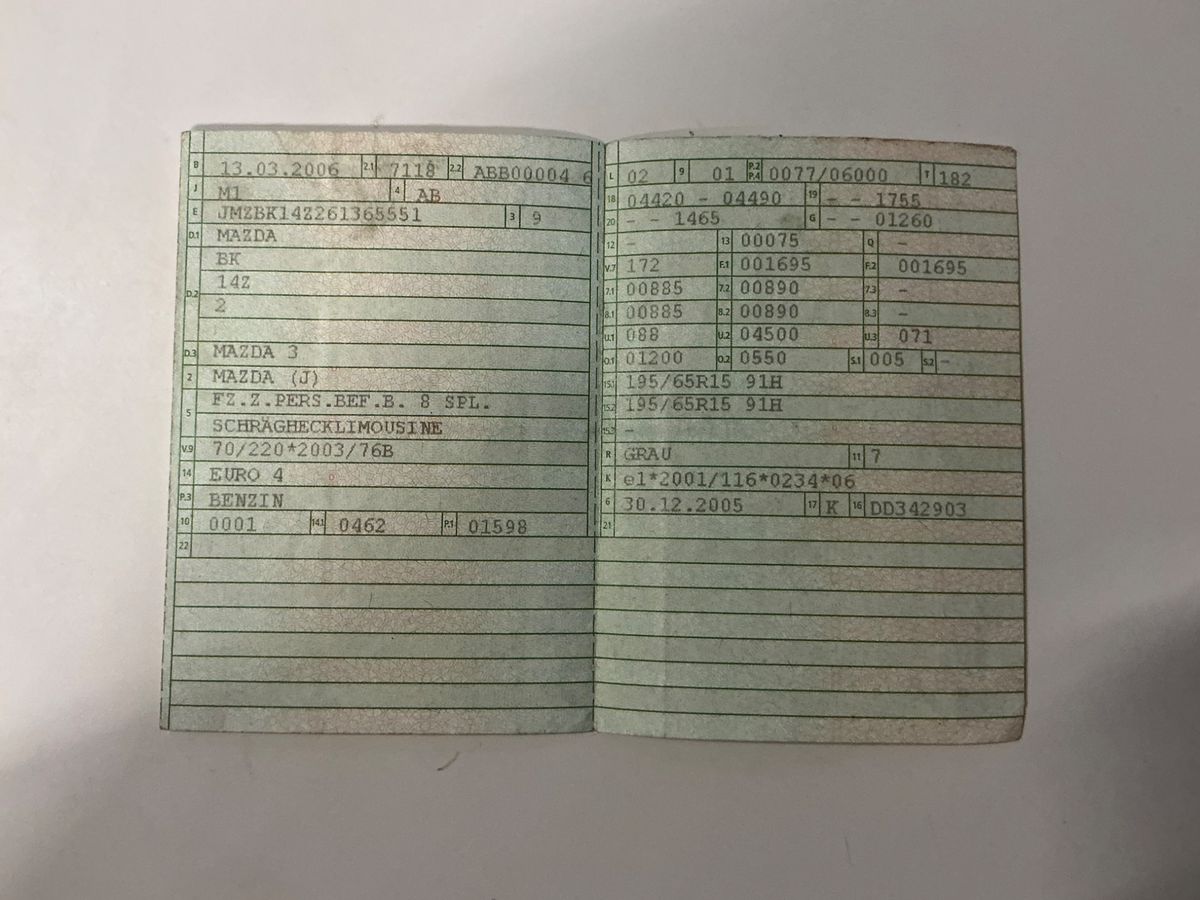 B 13.03.2006 2.1 7118 2.2 ABB00004 6
J M1 4 AB
E JMZBK14Z261365551 3 9
D.1 MAZDA
BK
D.2 14Z
2
D.3 MAZDA 3
2 MAZDA (J)
5 FZ.Z.PERS.BEF.B. 8 SPL.
SCHRÄGHECKLIMOUSINE
V.9 70/220*2003/76B
14 EURO 4
P.3 BENZIN
10 0001 14.1 0462 P.1 01598
22
L 02 9 01 P.2 P.4 0077/06000 T 182
18 04420 - 04490 19 - - 1755
20 - - 1465 G - - 01260
12 - 13 00075 Q -
V.7 172 F.1 001695 F.2 001695
7.1 00885 7.2 00890 7.3 -
8.1 00885 8.2 00890 8.3 -
U.1 088 U.2 04500 U.3 071
O.1 01200 O.2 0550 S.1 005 S.2 -
15.1 195/65R15 91H
15.2 195/65R15 91H
15.3 -
R GRAU 11 7
K e1*2001/116*0234*06
6 30.12.2005 17 K 16 DD342903
21